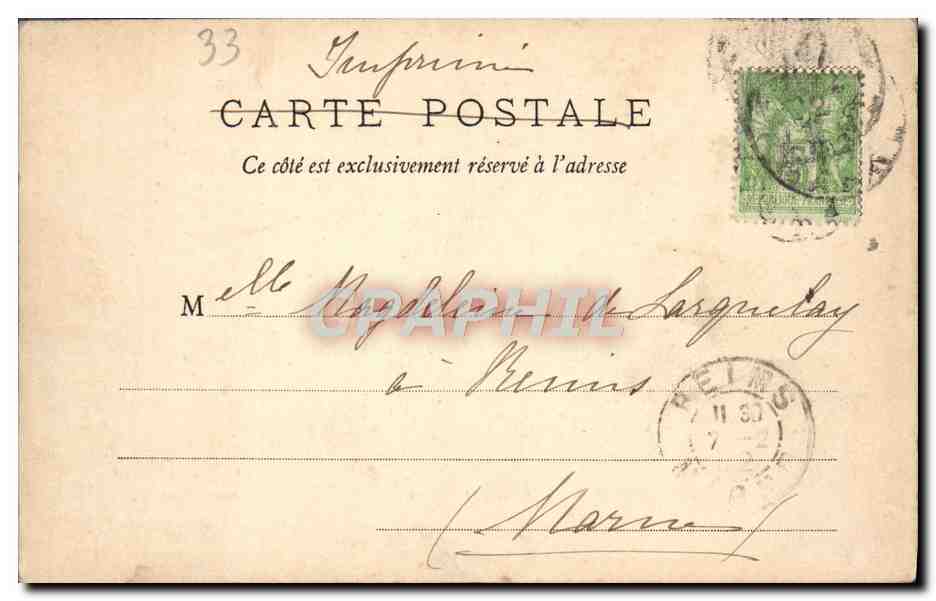 33
Imprimé
CARTE POSTALE
Ce côté est exclusivement réservé à l'adresse
Melle Magdeleine de Larguelay
à Reims
(Marne)
REIMS
11 30
7 - 2
CPAPHIL